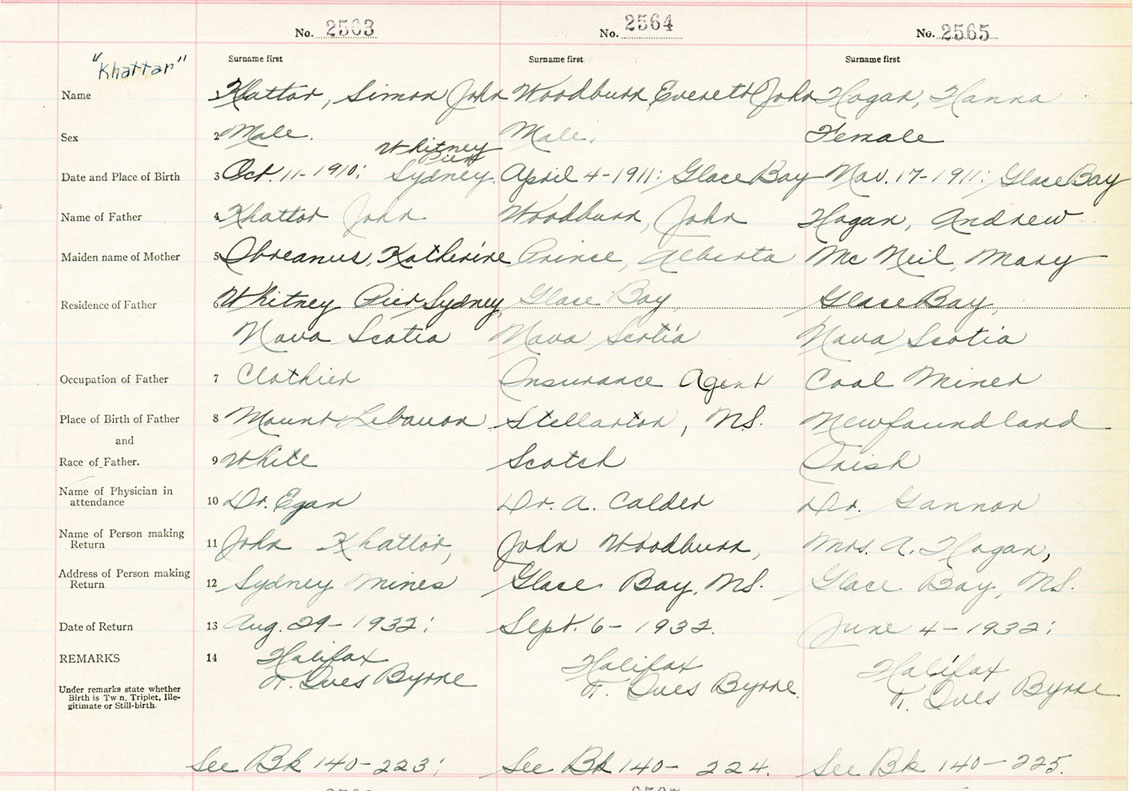 No. 2563 No. 2564 No. 2565
"Khattar" Surname first Surname first Surname first
Name Khattar, Simon John Woodburn, Everett John Hogan, Hanna
Sex 2 Male. Male. Female
Whitney
Pier
Date and Place of Birth 3 Oct. 11-1910; Sydney. April 4-1911; Glace Bay Nov. 17-1911; Glace Bay
Name of Father 4 Khattar John Woodburn, John Hogan, Andrew
Maiden name of Mother 5 Katherine Prince, Alberta Mc Neil, Mary
Residence of Father 6 Whitney Pier Sydney, Glace Bay, Glace Bay,
Nova Scotia Nova Scotia Nova Scotia
Occupation of Father 7 Clothier Insurance Agent Coal Miner
Place of Birth of Father 8 Mount Lebanon Stellarton, N.S. Newfoundland
and
Race of Father. 9 White Scotch Irish
Name of Physician in
attendance 10 Dr. Egan Dr. A. Calder Dr. Gannon
Name of Person making
Return 11 John Khattar, John Woodburn, Mrs. A. Hogan,
Address of Person making
Return 12 Sydney Mines Glace Bay, N.S. Glace Bay, N.S.
Date of Return 13 Aug. 29-1932; Sept. 6-1932. June 4-1932;
REMARKS 14 Halifax Halifax Halifax
Ives Byrne Ives Byrne. Ives Byrne
Under remarks state whether
Birth is Twin, Triplet, Ille-
gitimate or Still-birth.
See Bk 140-223; See Bk 140-224. See Bk 140-225.